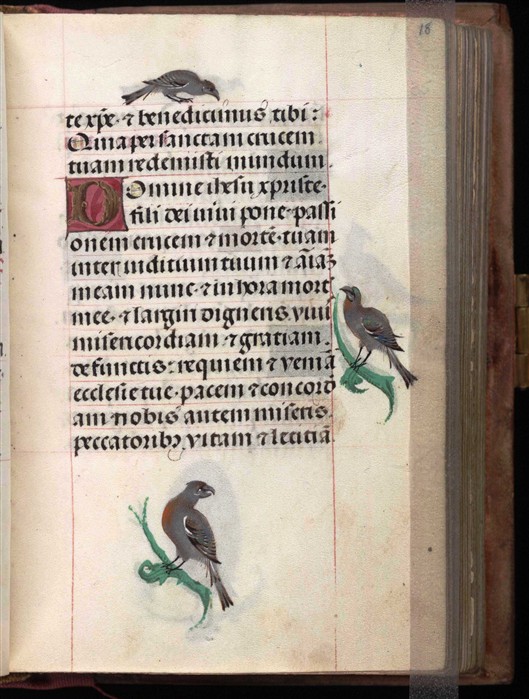 18
te xp̄e · ⁊ benedicimus tibi :
Quia per sanctam crucem
tuam redemisti mundum .
Domine ihesu xpriste ·
fili dei uiui pone · passi
onem crucem ⁊ mortē · tuam
inter iudicium tuum ⁊ aīaꝫ
meam nunc · ⁊ in hora mort
mee · ⁊ largiri digneris viui
misericordiam · ⁊ gratiam .
defunctis : requiem ⁊ veniā
ecclesie tue · pacem ⁊ concord
am nobis autem miseris
peccatoribꝫ vitam ⁊ leticiā